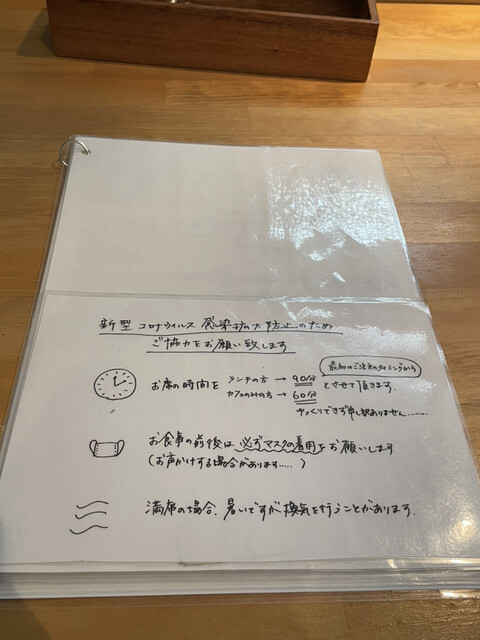 新型コロナウイルス感染拡大防止のため
ご協力をお願い致します
最初のご注文のタイミングから
お席の時間を ランチの方 → 90分 とさせて頂きます.
カフェのみの方 → 60分
ゆっくりできず申し訳ありません........
お食事の前後は必ずマスクの着用をお願いします
(お声かけする場合があります.....)
満席の場合、暑いですが換気を行うことがあります.